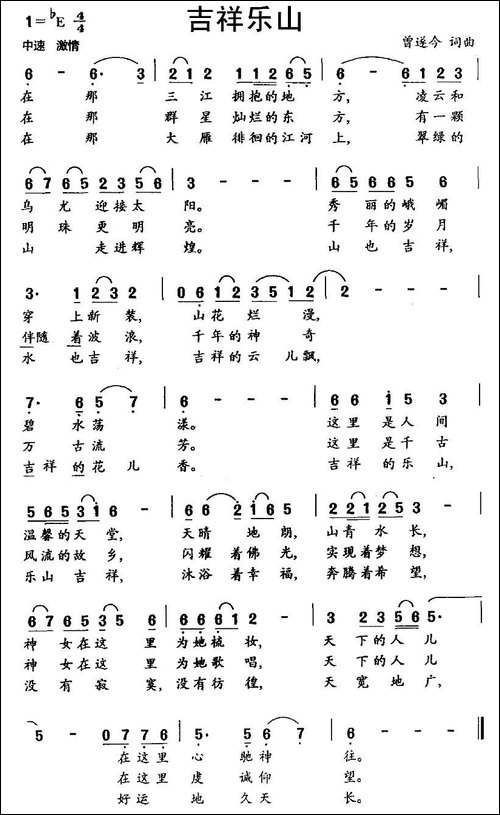 吉祥乐山
1=♭E 4/4
中速 激情
曾遂今 词曲
6 - 6· 3 | 2 1 2 1 1 2 6 5 | 6 - - - | 3 2 1 2
在那 三江 拥抱的地方, 凌云和
在那 群星 灿烂的东方, 有一颗
在那 大雁 徘徊的江河上, 翠绿的
6 7 6 5 2 3 5 6 | 3 - - - | 6 5 6 6 5 6
乌尤 迎接太阳。 秀丽的峨嵋
明珠更明亮。 千年的岁月
山 走进辉煌。 山也吉祥,
3· 1 2 3 2 | 0 6 1 2 3 5 1 2 | 2 - - -
穿 上新装, 山花烂漫,
伴随着波浪, 千年的神奇
水也吉祥, 吉祥的云儿飘,
7· 6 5 7 | 6 - - - | 6 6 1 5 3
碧水荡漾。 这里是人间
万古流芳。 这里是千古
吉祥的花儿香。 吉祥的乐山,
5 6 5 5 3 1 6 | 6 6 2 1 6 5 | 2 2 1 2 5 1 2
温馨的天堂, 天晴地朗, 山青水长,
风流的故乡, 闪耀着佛光, 实现着梦想,
乐山吉祥, 沐浴着幸福, 奔腾着希望,
6 7 6 5 3 5 3 | 6 6 6 1 2 - | 3 2 3 5 6 5·
神女在这里为她梳妆, 天下的人儿
神女在这里为她歌唱, 天下的人儿
没有寂寞,没有彷徨, 天宽地广,
5 - 0 7 7 6 | 5· 5 6 7 | 6 - - -
在这里心驰神往。
在这里虔诚仰望。
好运地久天长。